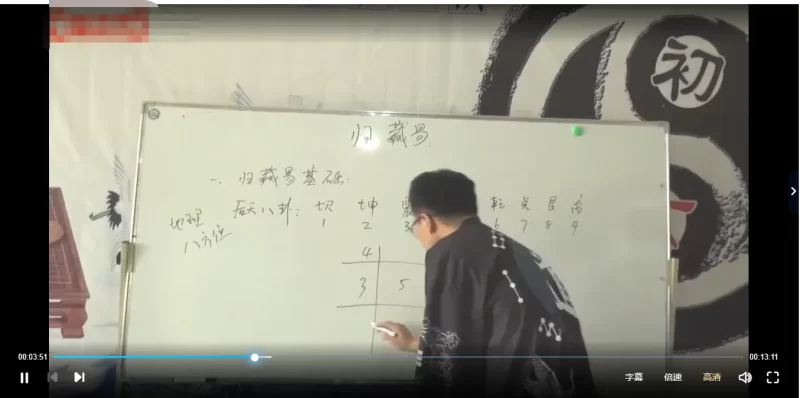 初
归藏易
一、归藏易基础:
后天八卦: 坎 坤 震 乾 兑 艮 离
1 2 3 6 7 8 9
地理
八方位
4
3 5
00:03:51 00:13:11
字幕 倍速 高清